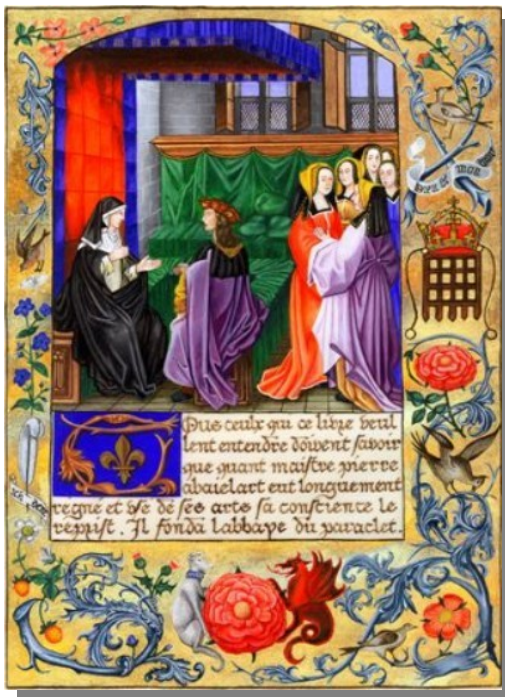 Dieu et mon
Ous ceulx qui ce livre veul
lent entendre doivent savoir
que quant maistre pierre
abaielart eut longuement
regne et use de ses arts sa conscience le
reprist. Il fonda labbaye du paraclet.